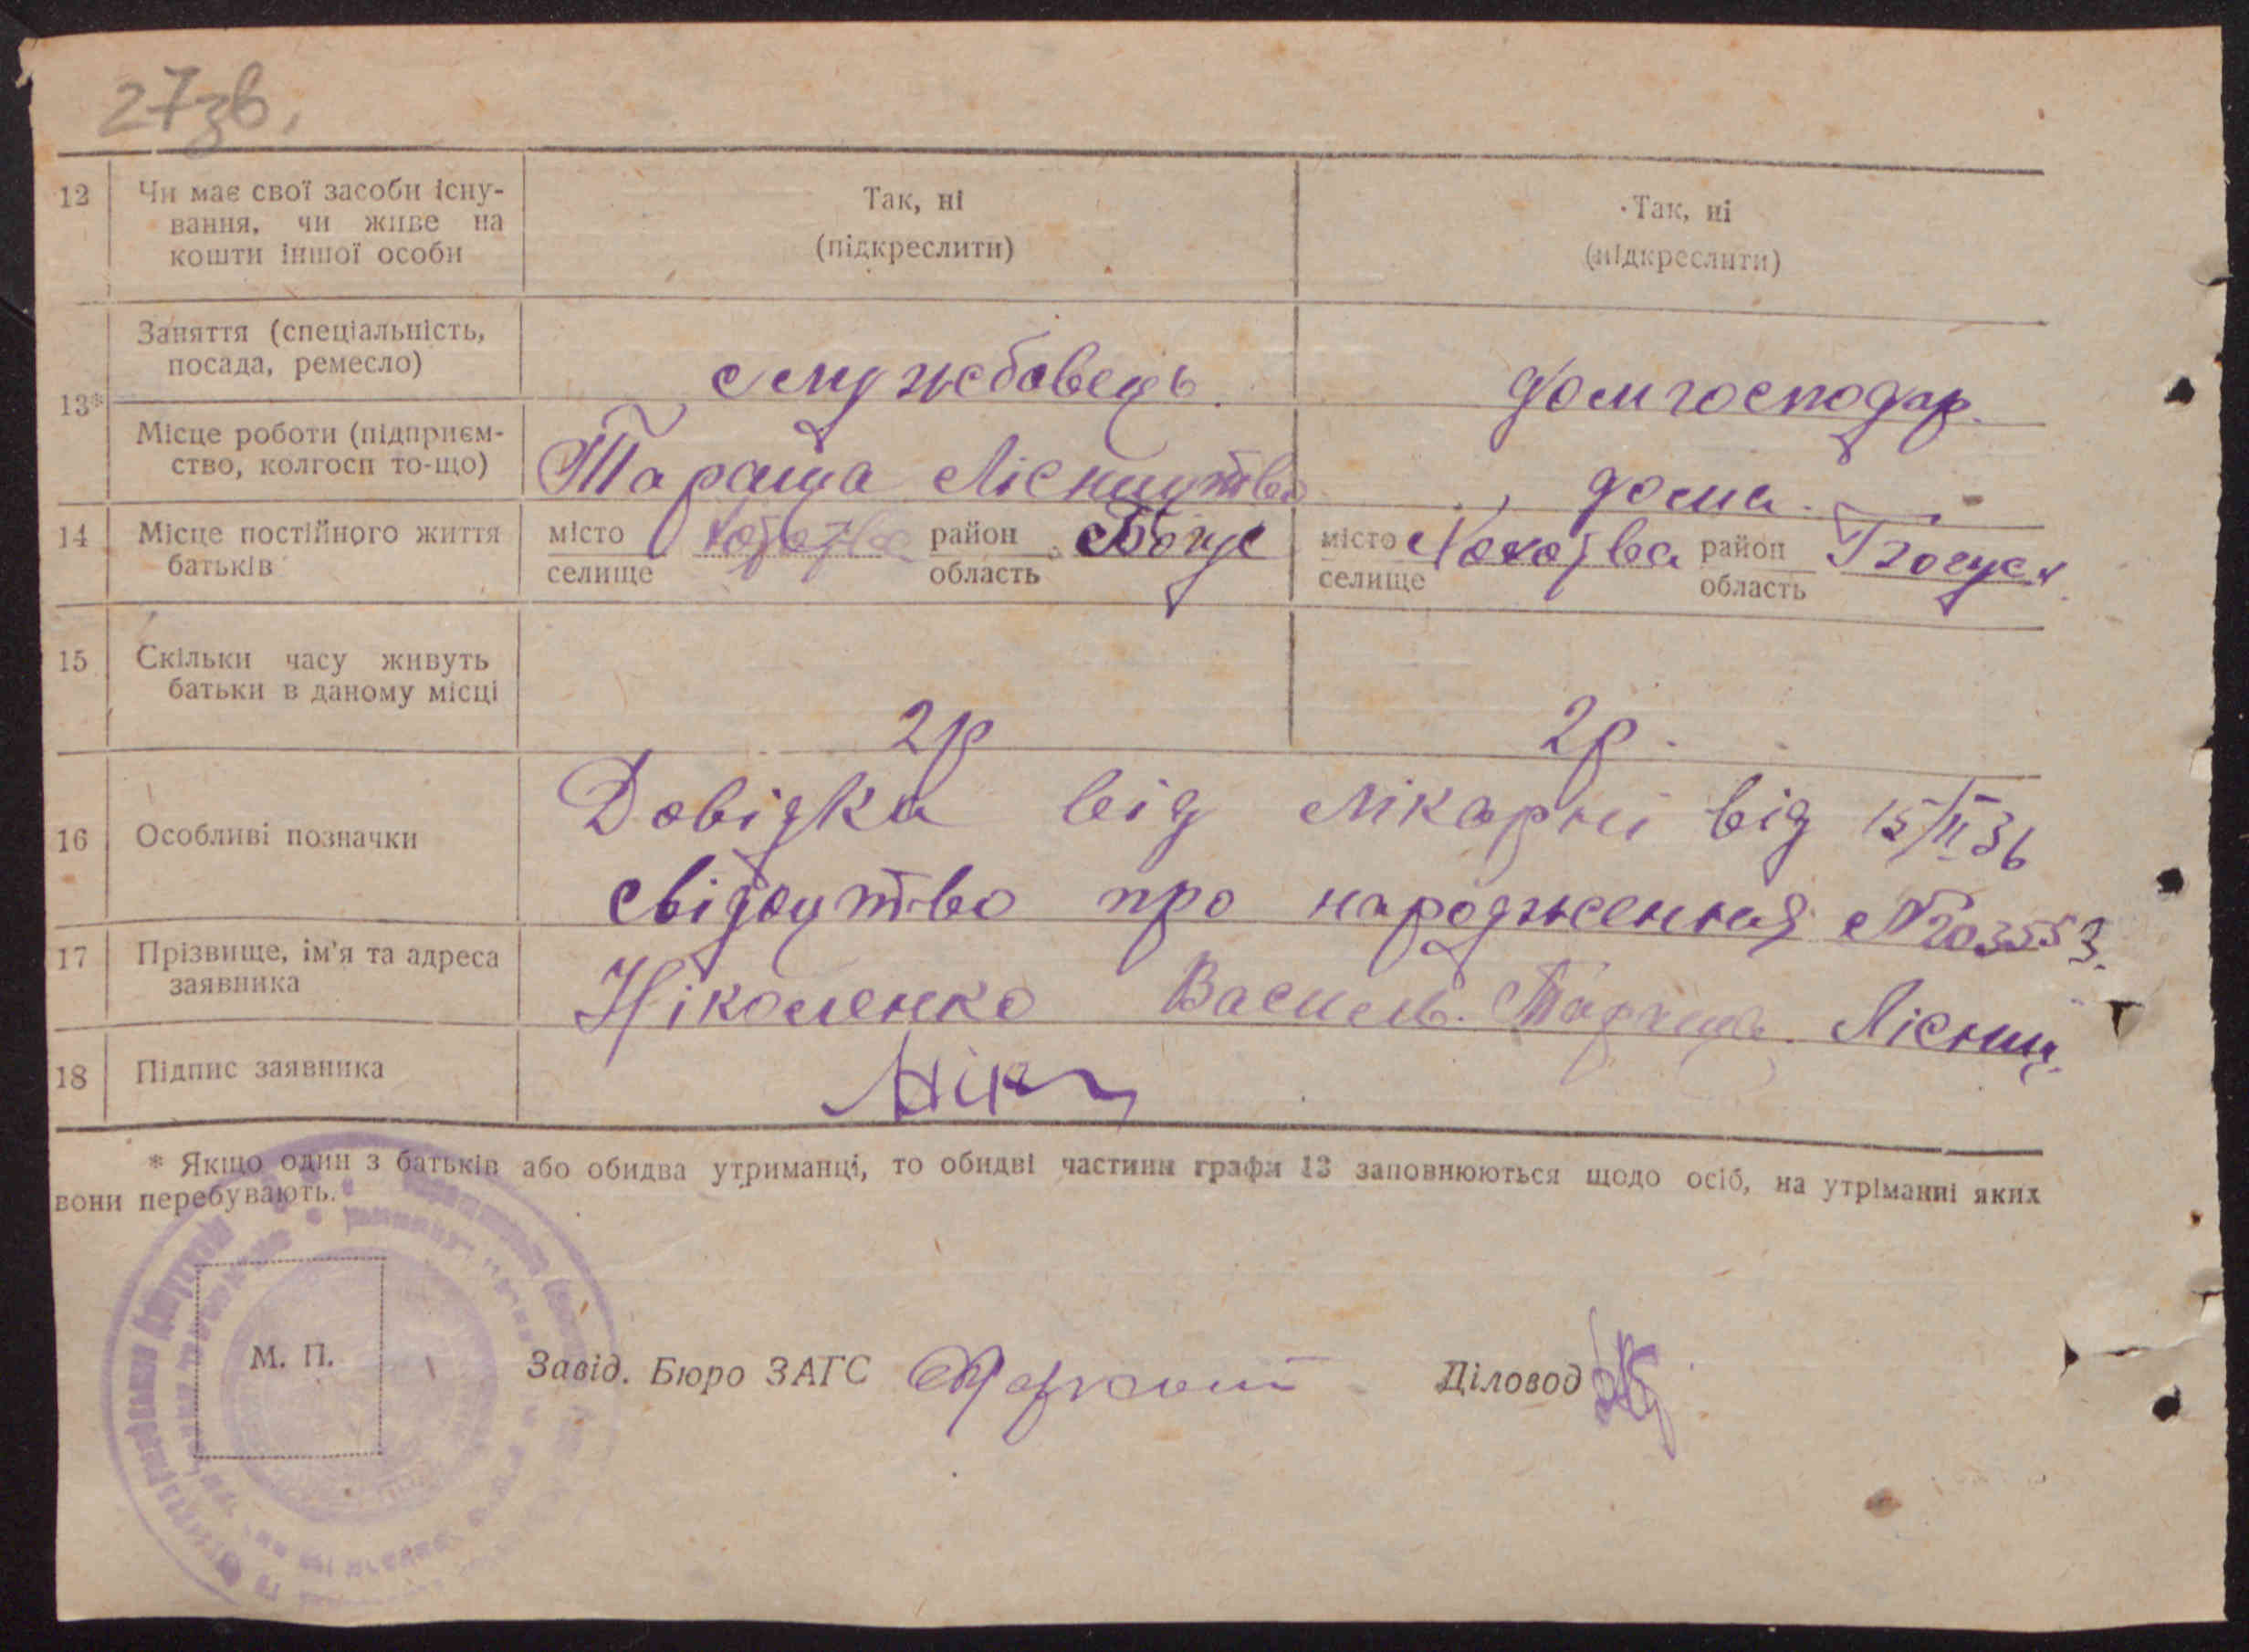 27зв.
12 Чи має свої засоби існу- Так, ні Так, ні
вання, чи живе на (підкреслити) (підкреслити)
кошти іншої особи
13* Заняття (спеціальність, службовець. домгосподар.
посада, ремесло)
Місце роботи (підприєм- Тараща Лісництво дома.
ство, колгосп то-що)
14 Місце постійного життя місто район Богус місто район Богусл
батьків селище область селище область
15 Скільки часу живуть
батьки в даному місці 2р 2р.
16 Особливі позначки Довідка від лікарні від 15/II 36
свідоцтво про народження № 203553.
17 Прізвище, ім'я та адреса Ніколенко Василь. Тараща. Лісниц.
заявника
18 Підпис заявника Нік
* Якщо один з батьків або обидва утриманці, то обидві частини графи 13 заповнюються щодо осіб, на утріманні яких
вони перебувають.
М. П. Завід. Бюро ЗАГС Діловод